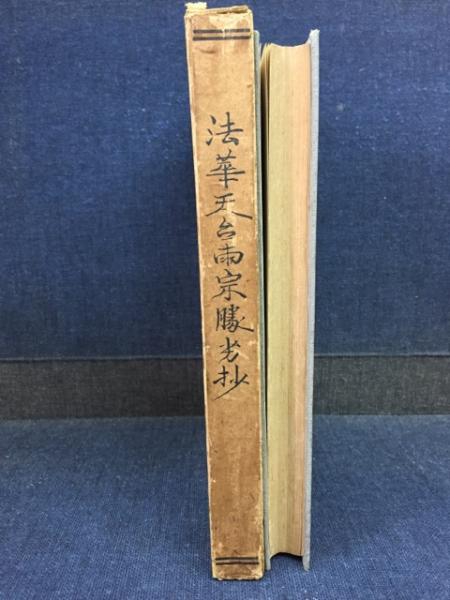 法華天台両宗勝劣抄